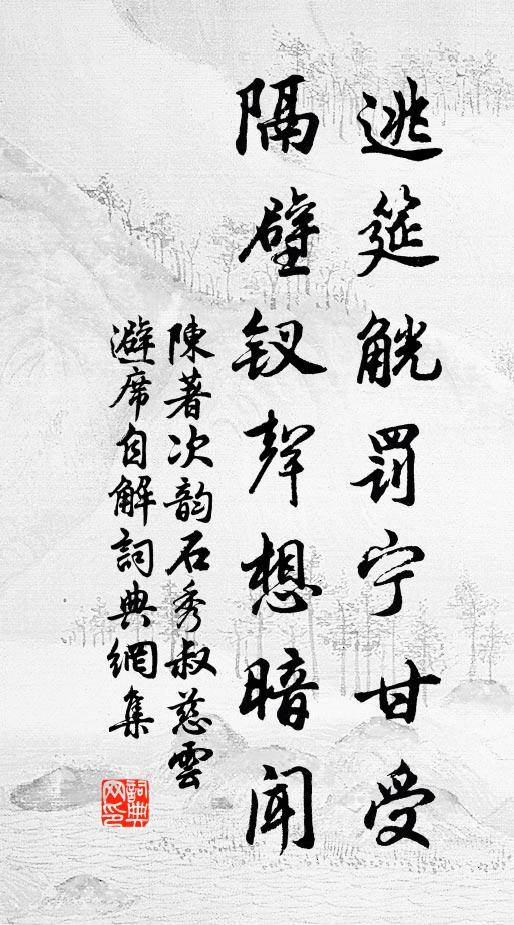 逃筵觥罚宁甘受
隔壁钗聲想暗闻
陳著次韵石秀叔慈雲
避席自解詞典網集
詞典网印